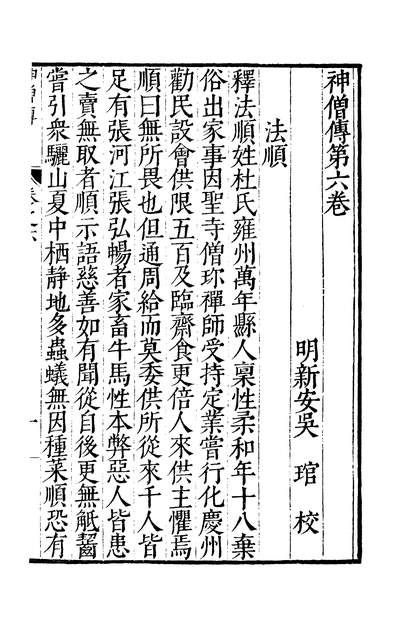 神僧傳第六卷
明新安吳 琯 校
法順
釋法順姓杜氏雍州萬年縣人稟性柔和年十八棄
俗出家事因聖寺僧珎禪師受持定業嘗行化慶州
勸民設會供限五百及臨齋食更倍人來供主懼焉
順曰無所畏也但通周給而莫委供所從來千人皆
足有張河江張弘暢者家畜牛馬性本弊惡人皆患
之賣無取者順示語慈善如有聞從自後更無觝齧
嘗引衆驪山夏中栖静地多蟲蟻無因種菜順恐有
神僧傳
卷之六
一